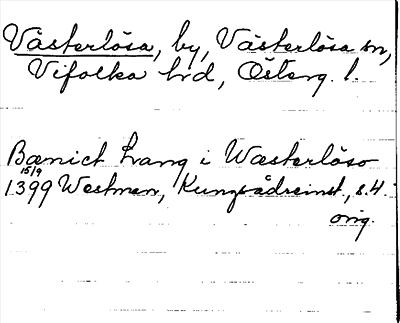 Västerlösa, by, Västerlösa sn,
Vifolka hd, Österg. l.
Bænict Lang i Wæsterløso
15/9
1399 Westmen, Kungsådreinst., s. 4.
orig.